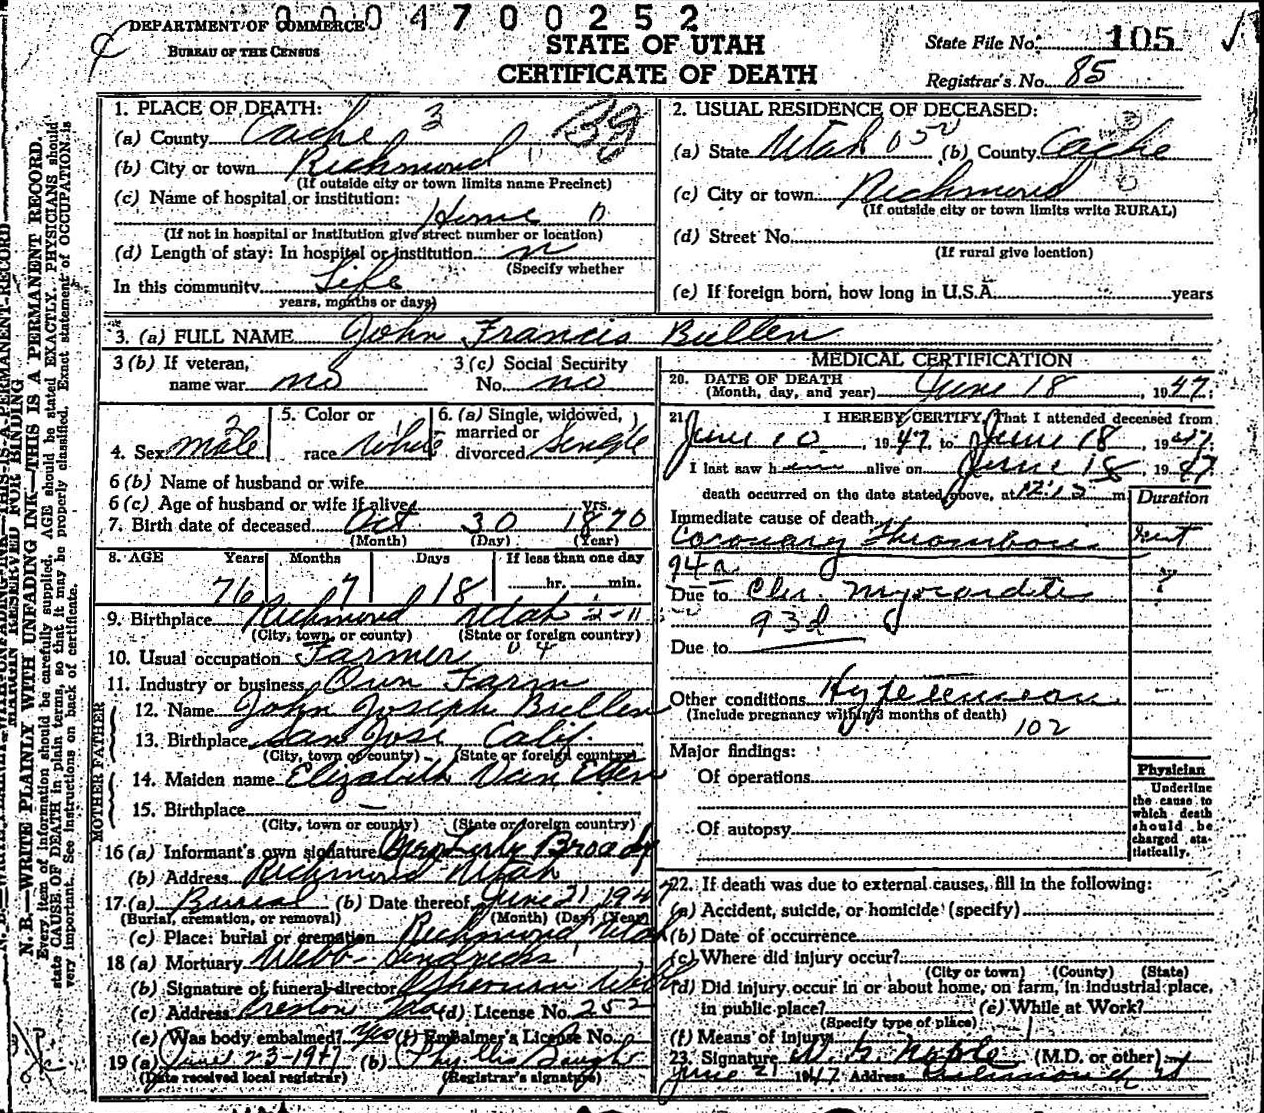 0004700252
DEPARTMENT OF COMMERCE
BUREAU OF THE CENSUS
STATE OF UTAH
CERTIFICATE OF DEATH
State File No. 105
Registrar's No. 85
1. PLACE OF DEATH:
(a) County Cache 3
(b) City or town Richmond
(If outside city or town limits name Precinct)
(c) Name of hospital or institution:
Home 0
(If not in hospital or institution give street number or location)
(d) Length of stay: In hospital or institution
(Specify whether
In this community Life
years, months or days)
2. USUAL RESIDENCE OF DECEASED:
(a) State Utah 05 (b) County Cache
(c) City or town Richmond 0
(If outside city or town limits write RURAL)
(d) Street No.
(If rural give location)
(e) If foreign born, how long in U.S.A. years
3. (a) FULL NAME John Francis Bullen
3 (b) If veteran,
name war no
3 (c) Social Security
No. no
4. Sex male 2
5. Color or
race White
6. (a) Single, widowed,
married or
divorced Single
6 (b) Name of husband or wife
6 (c) Age of husband or wife if alive yrs.
7. Birth date of deceased Oct 30 1870
(Month) (Day) (Year)
8. AGE Years Months Days If less than one day
76 7 18 hr. min.
9. Birthplace Richmond Utah 2-11
(City, town, or county) (State or foreign country)
10. Usual occupation Farmer 04
11. Industry or business Own Farm
FATHER
12. Name John Joseph Bullen
13. Birthplace San Jose Calif.
(City, town or county) (State or foreign country)
MOTHER
14. Maiden name Elizabeth Van
15. Birthplace —
(City, town or county) (State or foreign country)
16 (a) Informant's own signature Mrs Broady
(b) Address Richmond Utah
17 (a) Burial (b) Date thereof June 21, 1947
(Burial, cremation, or removal) (Month) (Day) (Year)
(c) Place: burial or cremation Richmond, Utah
18 (a) Mortuary Webb-Hendricks
(b) Signature of funeral director Webb
(c) Address Preston Ida (d) License No. 252
(e) Was body embalmed? Yes (f) Embalmer's License No.
19 (a) June 23-1947 (b) Phyllis Baugh
(Date received local registrar) (Registrar's signature)
MEDICAL CERTIFICATION
20. DATE OF DEATH
(Month, day, and year) June 18, 1947.
21. I HEREBY CERTIFY, That I attended deceased from
June 10, 1947, to June 18, 1947
I last saw him alive on June 18, 1947
death occurred on the date stated above, at 12:15 m
Duration
Immediate cause of death
Coronary Thrombosis
94a
Due to Chr. Myocarditis ?
93d
Due to
Other conditions
(Include pregnancy within 3 months of death)
102
Major findings:
Of operations
Of autopsy
Physician
Underline
the cause to
which death
should be
charged sta-
tistically.
22. If death was due to external causes, fill in the following:
(a) Accident, suicide, or homicide (specify)
(b) Date of occurrence
(c) Where did injury occur?
(City or town) (County) (State)
(d) Did injury occur in or about home, on farm, in industrial place,
in public place? (e) While at Work?
(Specify type of place)
(f) Means of injury
23. Signature (M.D. or other)
June 21 1947 Address Richmond Ut
MARGIN RESERVED FOR BINDING
N. B.—WRITE PLAINLY WITH UNFADING INK—THIS IS A PERMANENT RECORD.
Every item of information should be carefully supplied. AGE should be stated EXACTLY. PHYSICIANS should
state CAUSE OF DEATH in plain terms, so that it may be properly classified. Exact statement of OCCUPATION is
very important. See instructions on back of certificate.